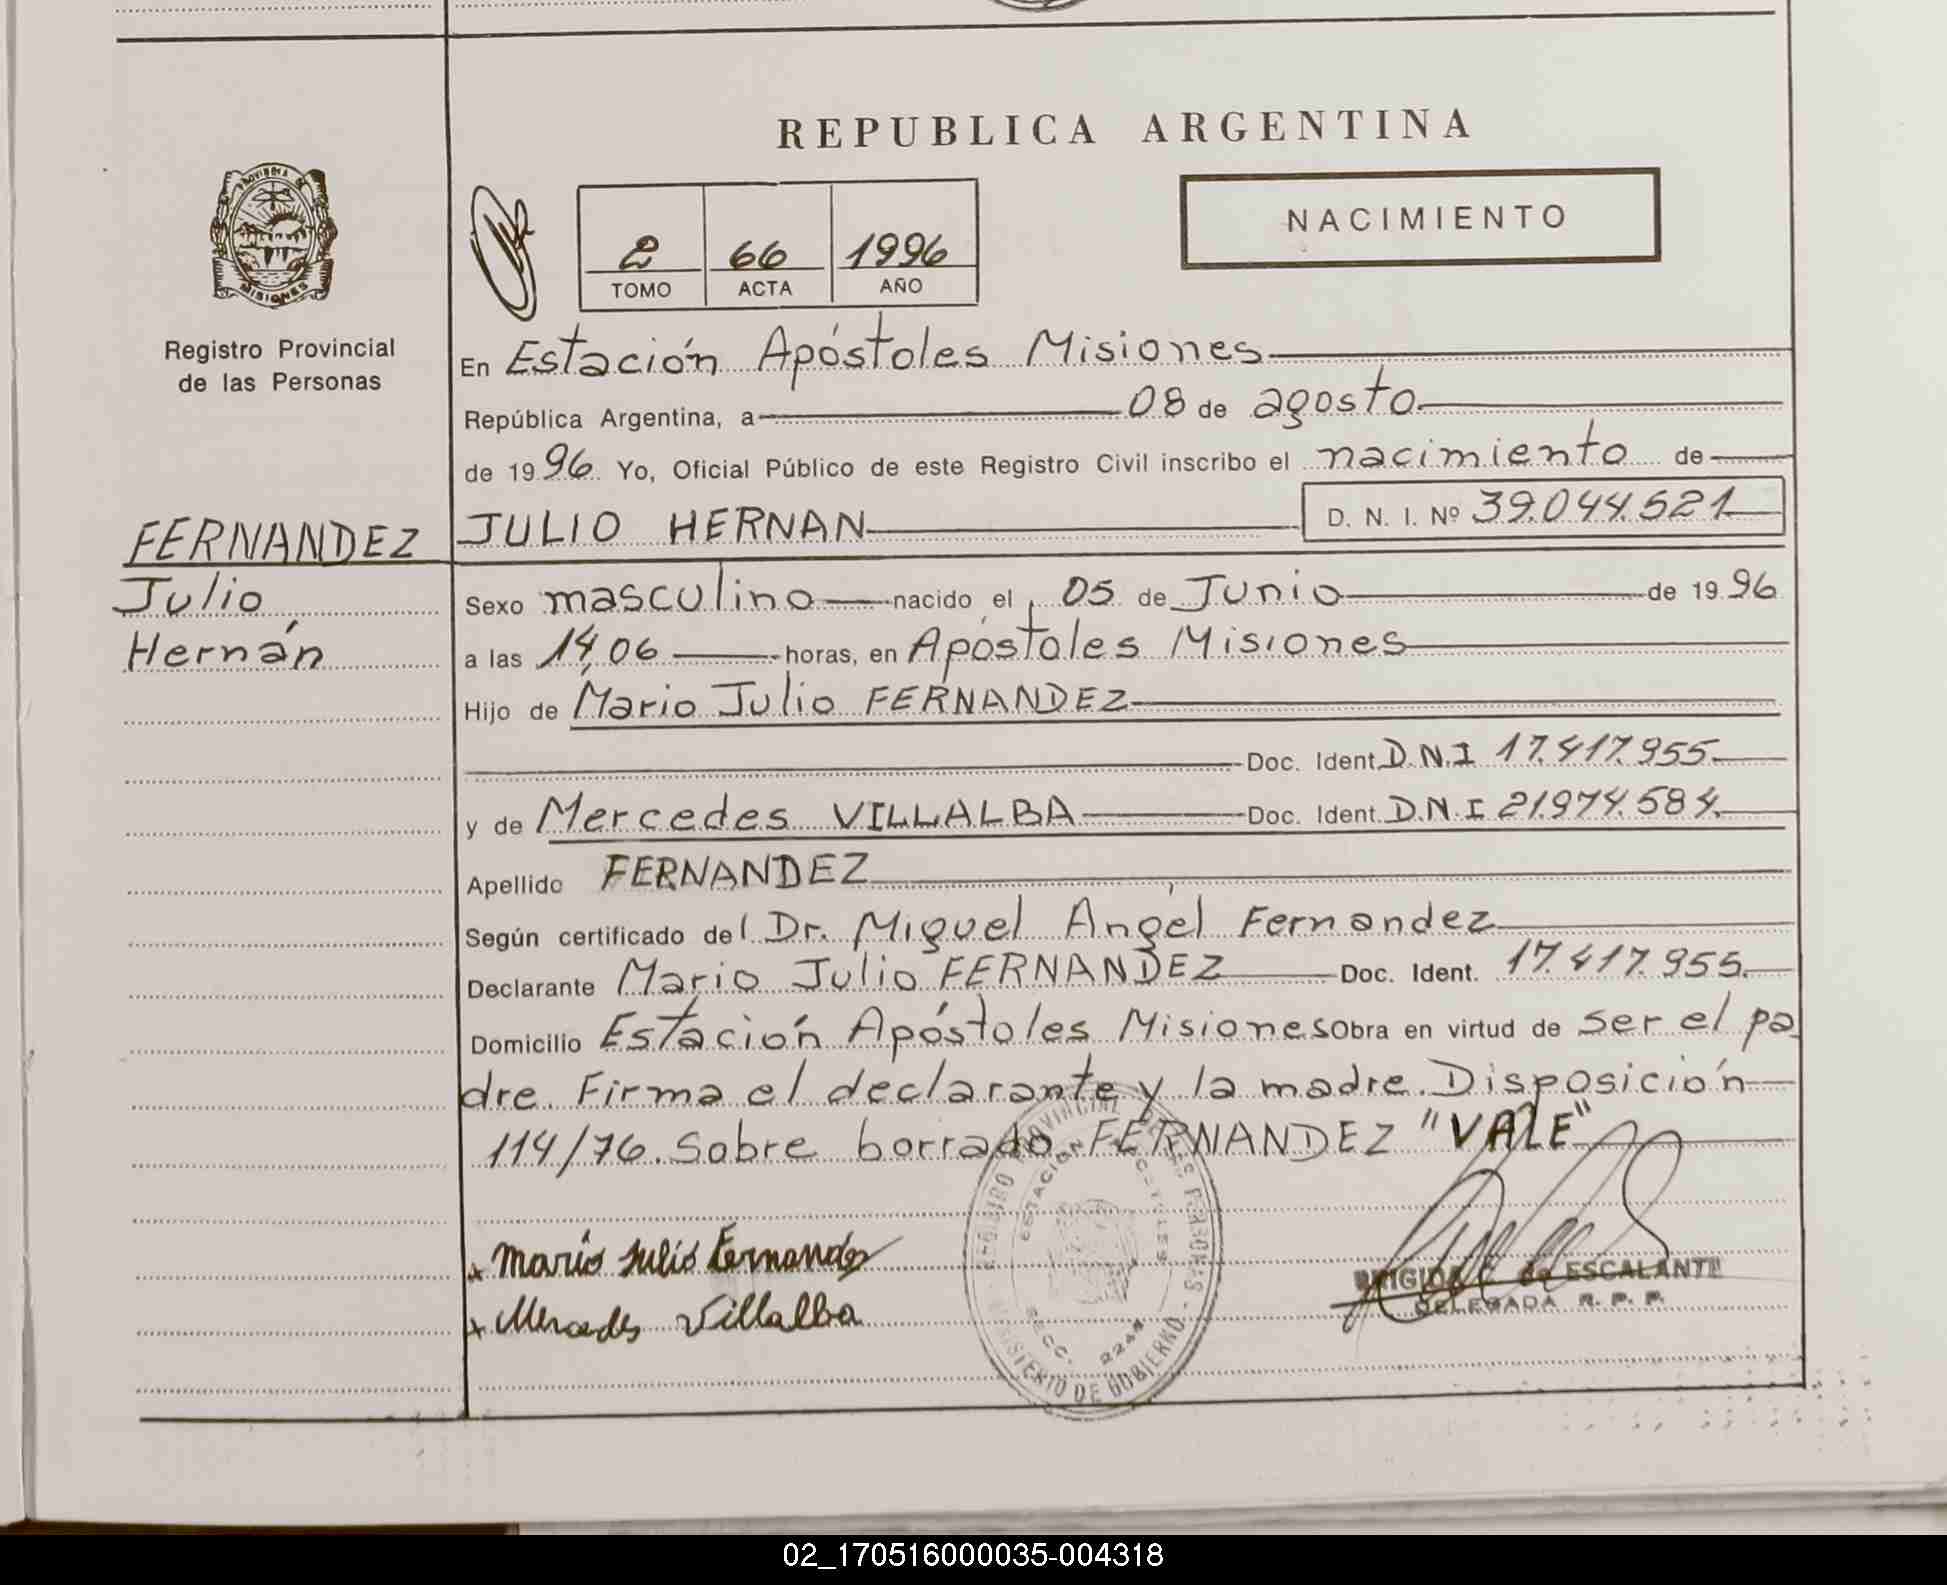 REPUBLICA ARGENTINA
PROVINCIA DE
MISIONES
Registro Provincial
de las Personas
NACIMIENTO
2 66 1996
TOMO ACTA AÑO
En Estación Apóstoles Misiones
República Argentina, a 08 de agosto
de 1996. Yo, Oficial Público de este Registro Civil inscribo el nacimiento de
FERNANDEZ
Julio
Hernán
JULIO HERNAN D. N. I. Nº 39.044.521
Sexo masculino nacido el 05 de Junio de 1996
a las 14,06 horas, en Apóstoles Misiones
Hijo de Mario Julio FERNANDEZ
Doc. Ident. D.N.I 17.417.955.
y de Mercedes VILLALBA Doc. Ident. D.N.I 21.974.584.
Apellido FERNANDEZ
Según certificado del Dr. Miguel Angel Fernandez
Declarante Mario Julio FERNANDEZ Doc. Ident. 17.417.955.
Domicilio Estación Apóstoles Misiones Obra en virtud de ser el pa
dre. Firma el declarante y la madre. Disposición
114/76. Sobre borrado FERNANDEZ "VALE"
x Mario Julio Fernandez
x Mercedes Villalba
REGISTRO PROVINCIAL DE LAS PERSONAS - MINISTERIO DE GOBIERNO
ESTACION APOSTOLES
SECC. 2244
BRIGIDA C. de ESCALANTE
DELEGADA R. P. P.
02_170516000035-004318